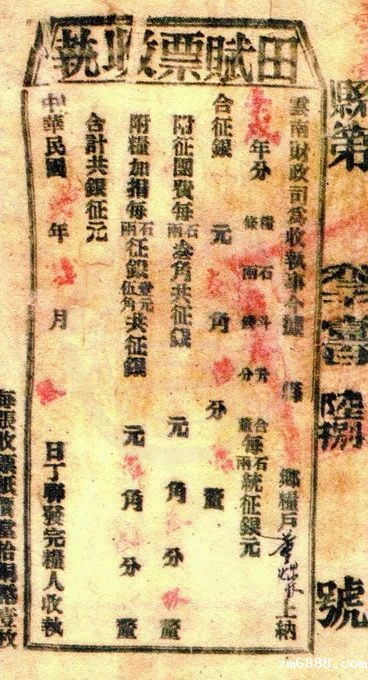 田賦票收執
縣第
壹
陸捌
號
雲南財政司為收執事今據
鄉糧戶
上納
年分
條 糧
兩 石
錢 斗
分 升
合
每石
兩
統征銀元
合征銀 元 角 分 釐
附征團費每石兩叁角共征銀 元 角 分 釐
附糧加捐每石征銀壹元兩征銀伍角共征銀 元 角 分 釐
合計共銀征元
中華民國 年 月 日丁聯發完糧人收執
每張收票紙價當拾銅幣壹枚
zm6888.com